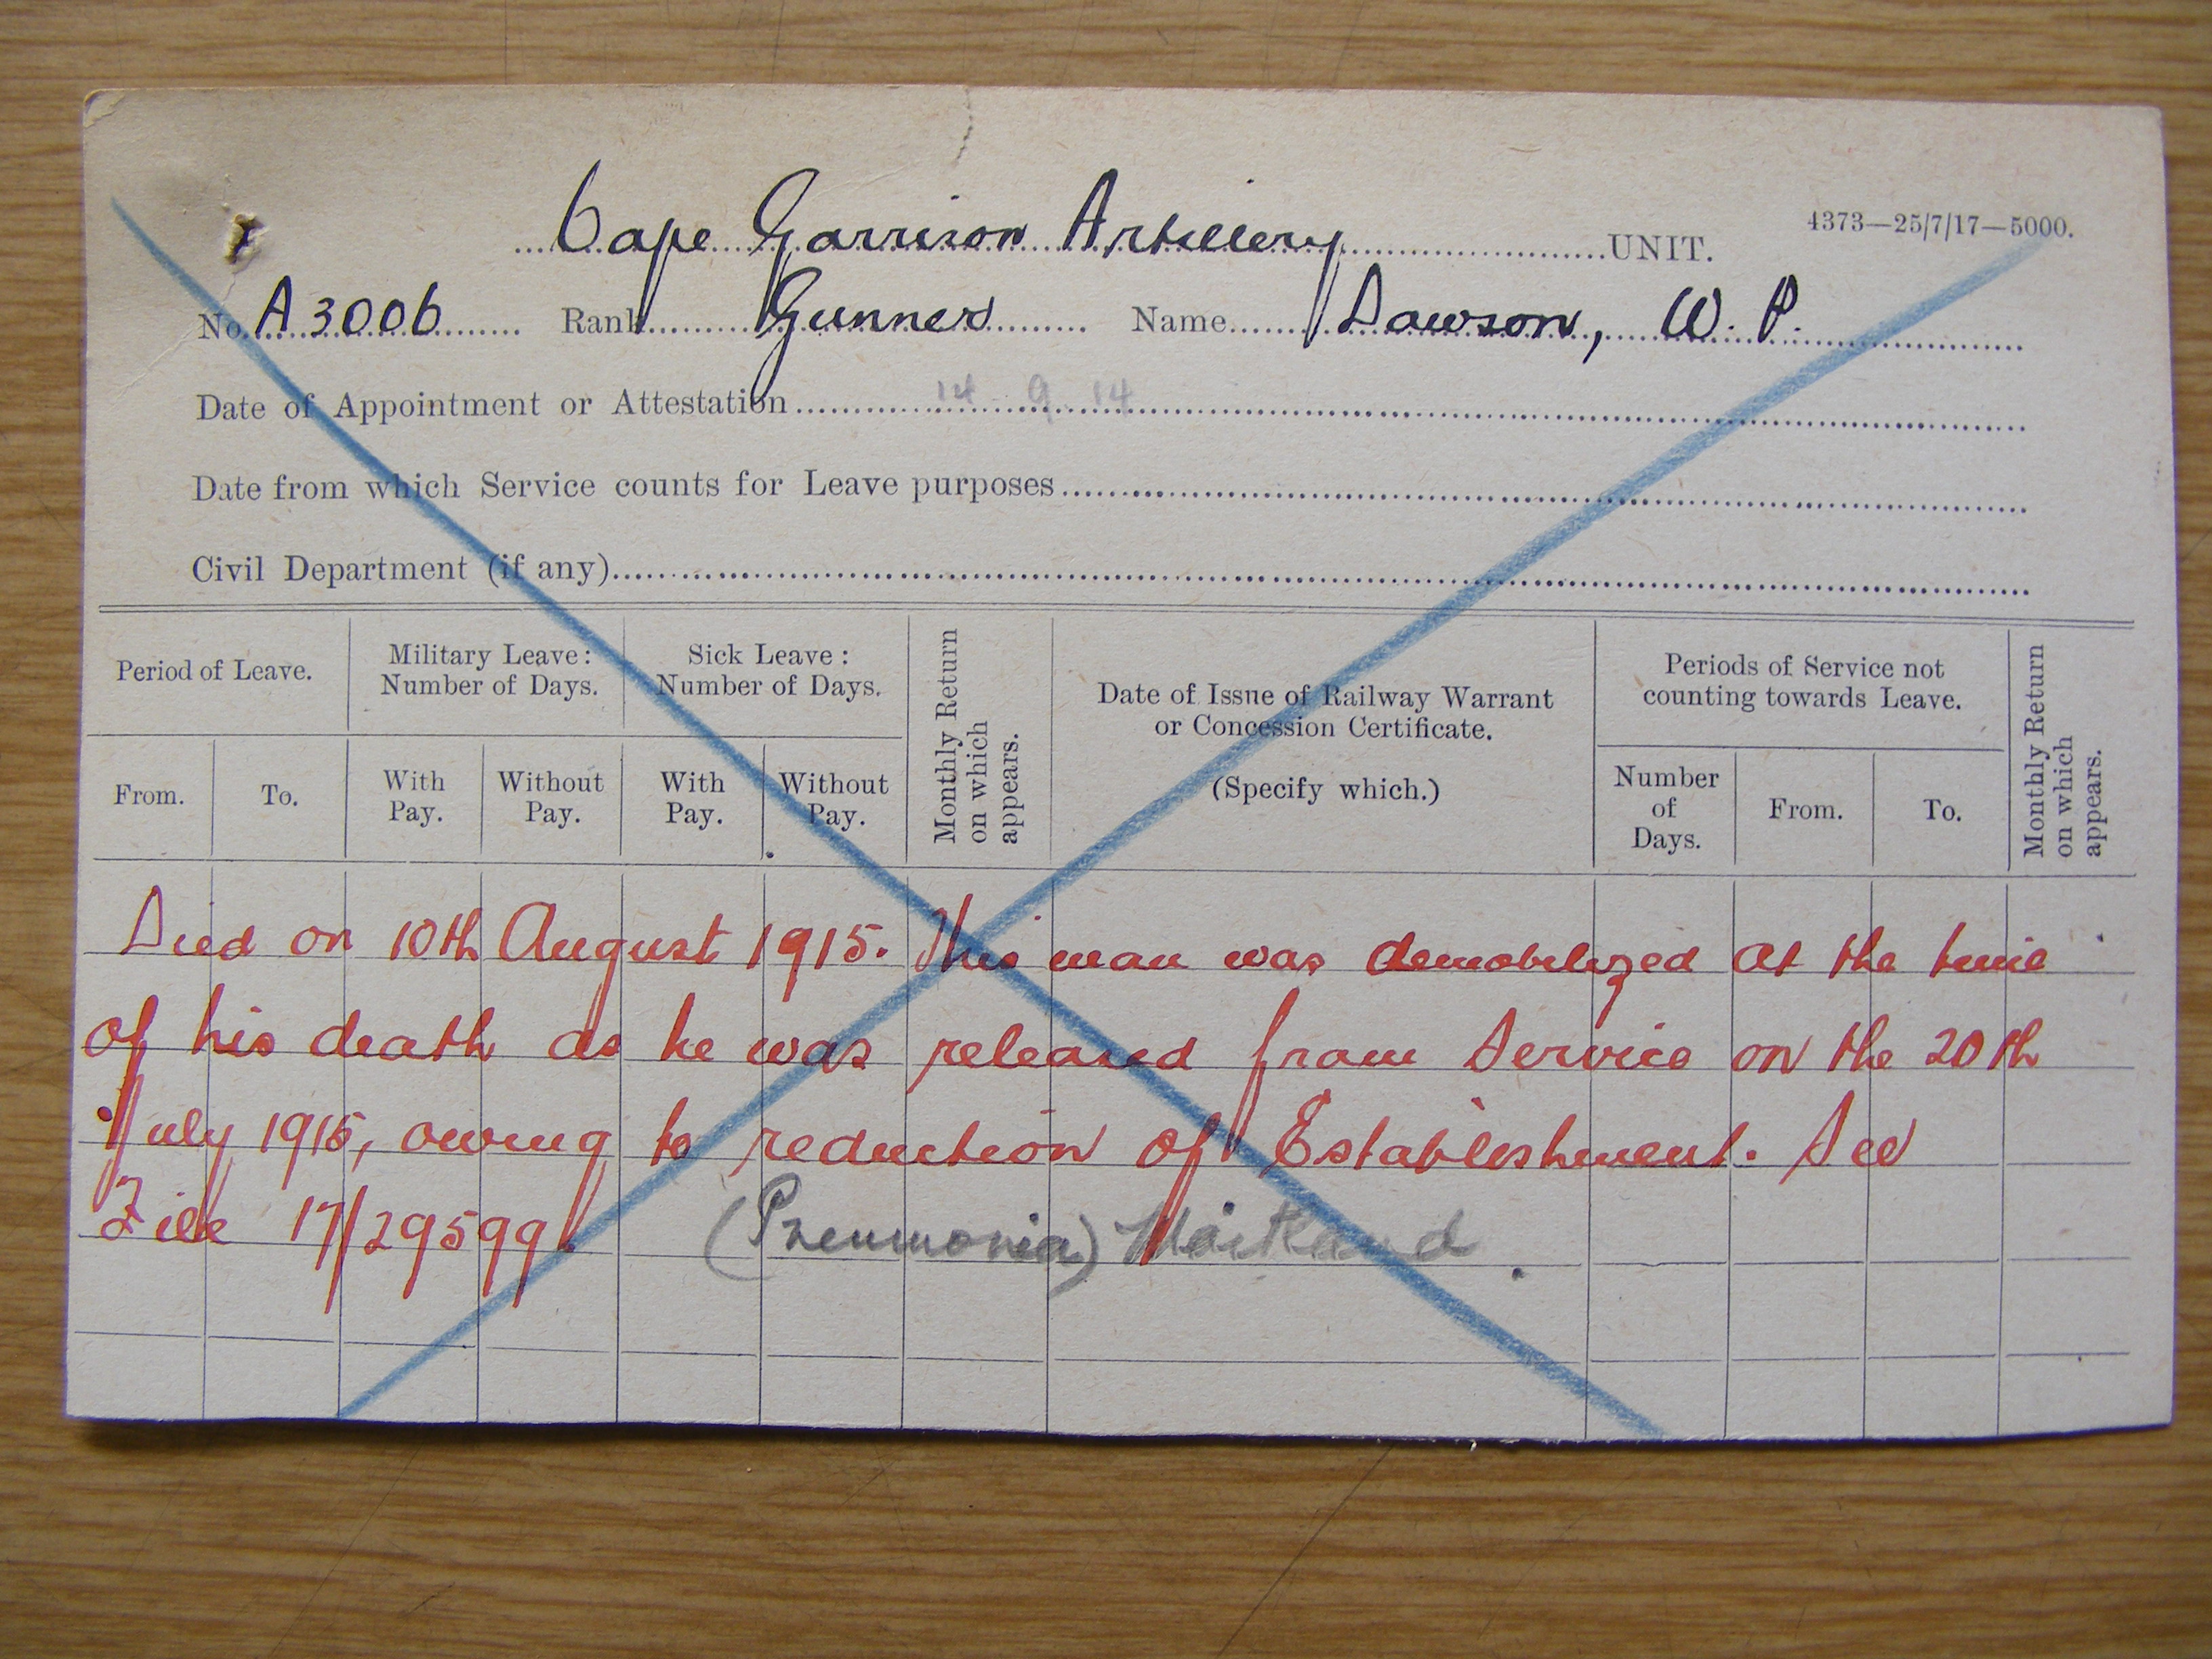 Cape Garrison Artillery UNIT. 4373—25/7/17—5000.
No. A3006 Rank Gunner Name Dawson, W. P.
Date of Appointment or Attestation 14 9 14
Date from which Service counts for Leave purposes
Civil Department (if any)
Period of Leave.
From. To.
Military Leave:
Number of Days.
With Pay. Without Pay.
Sick Leave:
Number of Days.
With Pay. Without Pay.
Monthly Return
on which
appears.
Date of Issue of Railway Warrant
or Concession Certificate.
(Specify which.)
Periods of Service not
counting towards Leave.
Number of Days. From. To.
Monthly Return
on which
appears.
Died on 10th August 1915. This man was demobilized at the time
of his death as he was released from Service on the 20th
July 1915, owing to reduction of Establishment. See
File 17/29599.
(Pneumonia) Maitland.